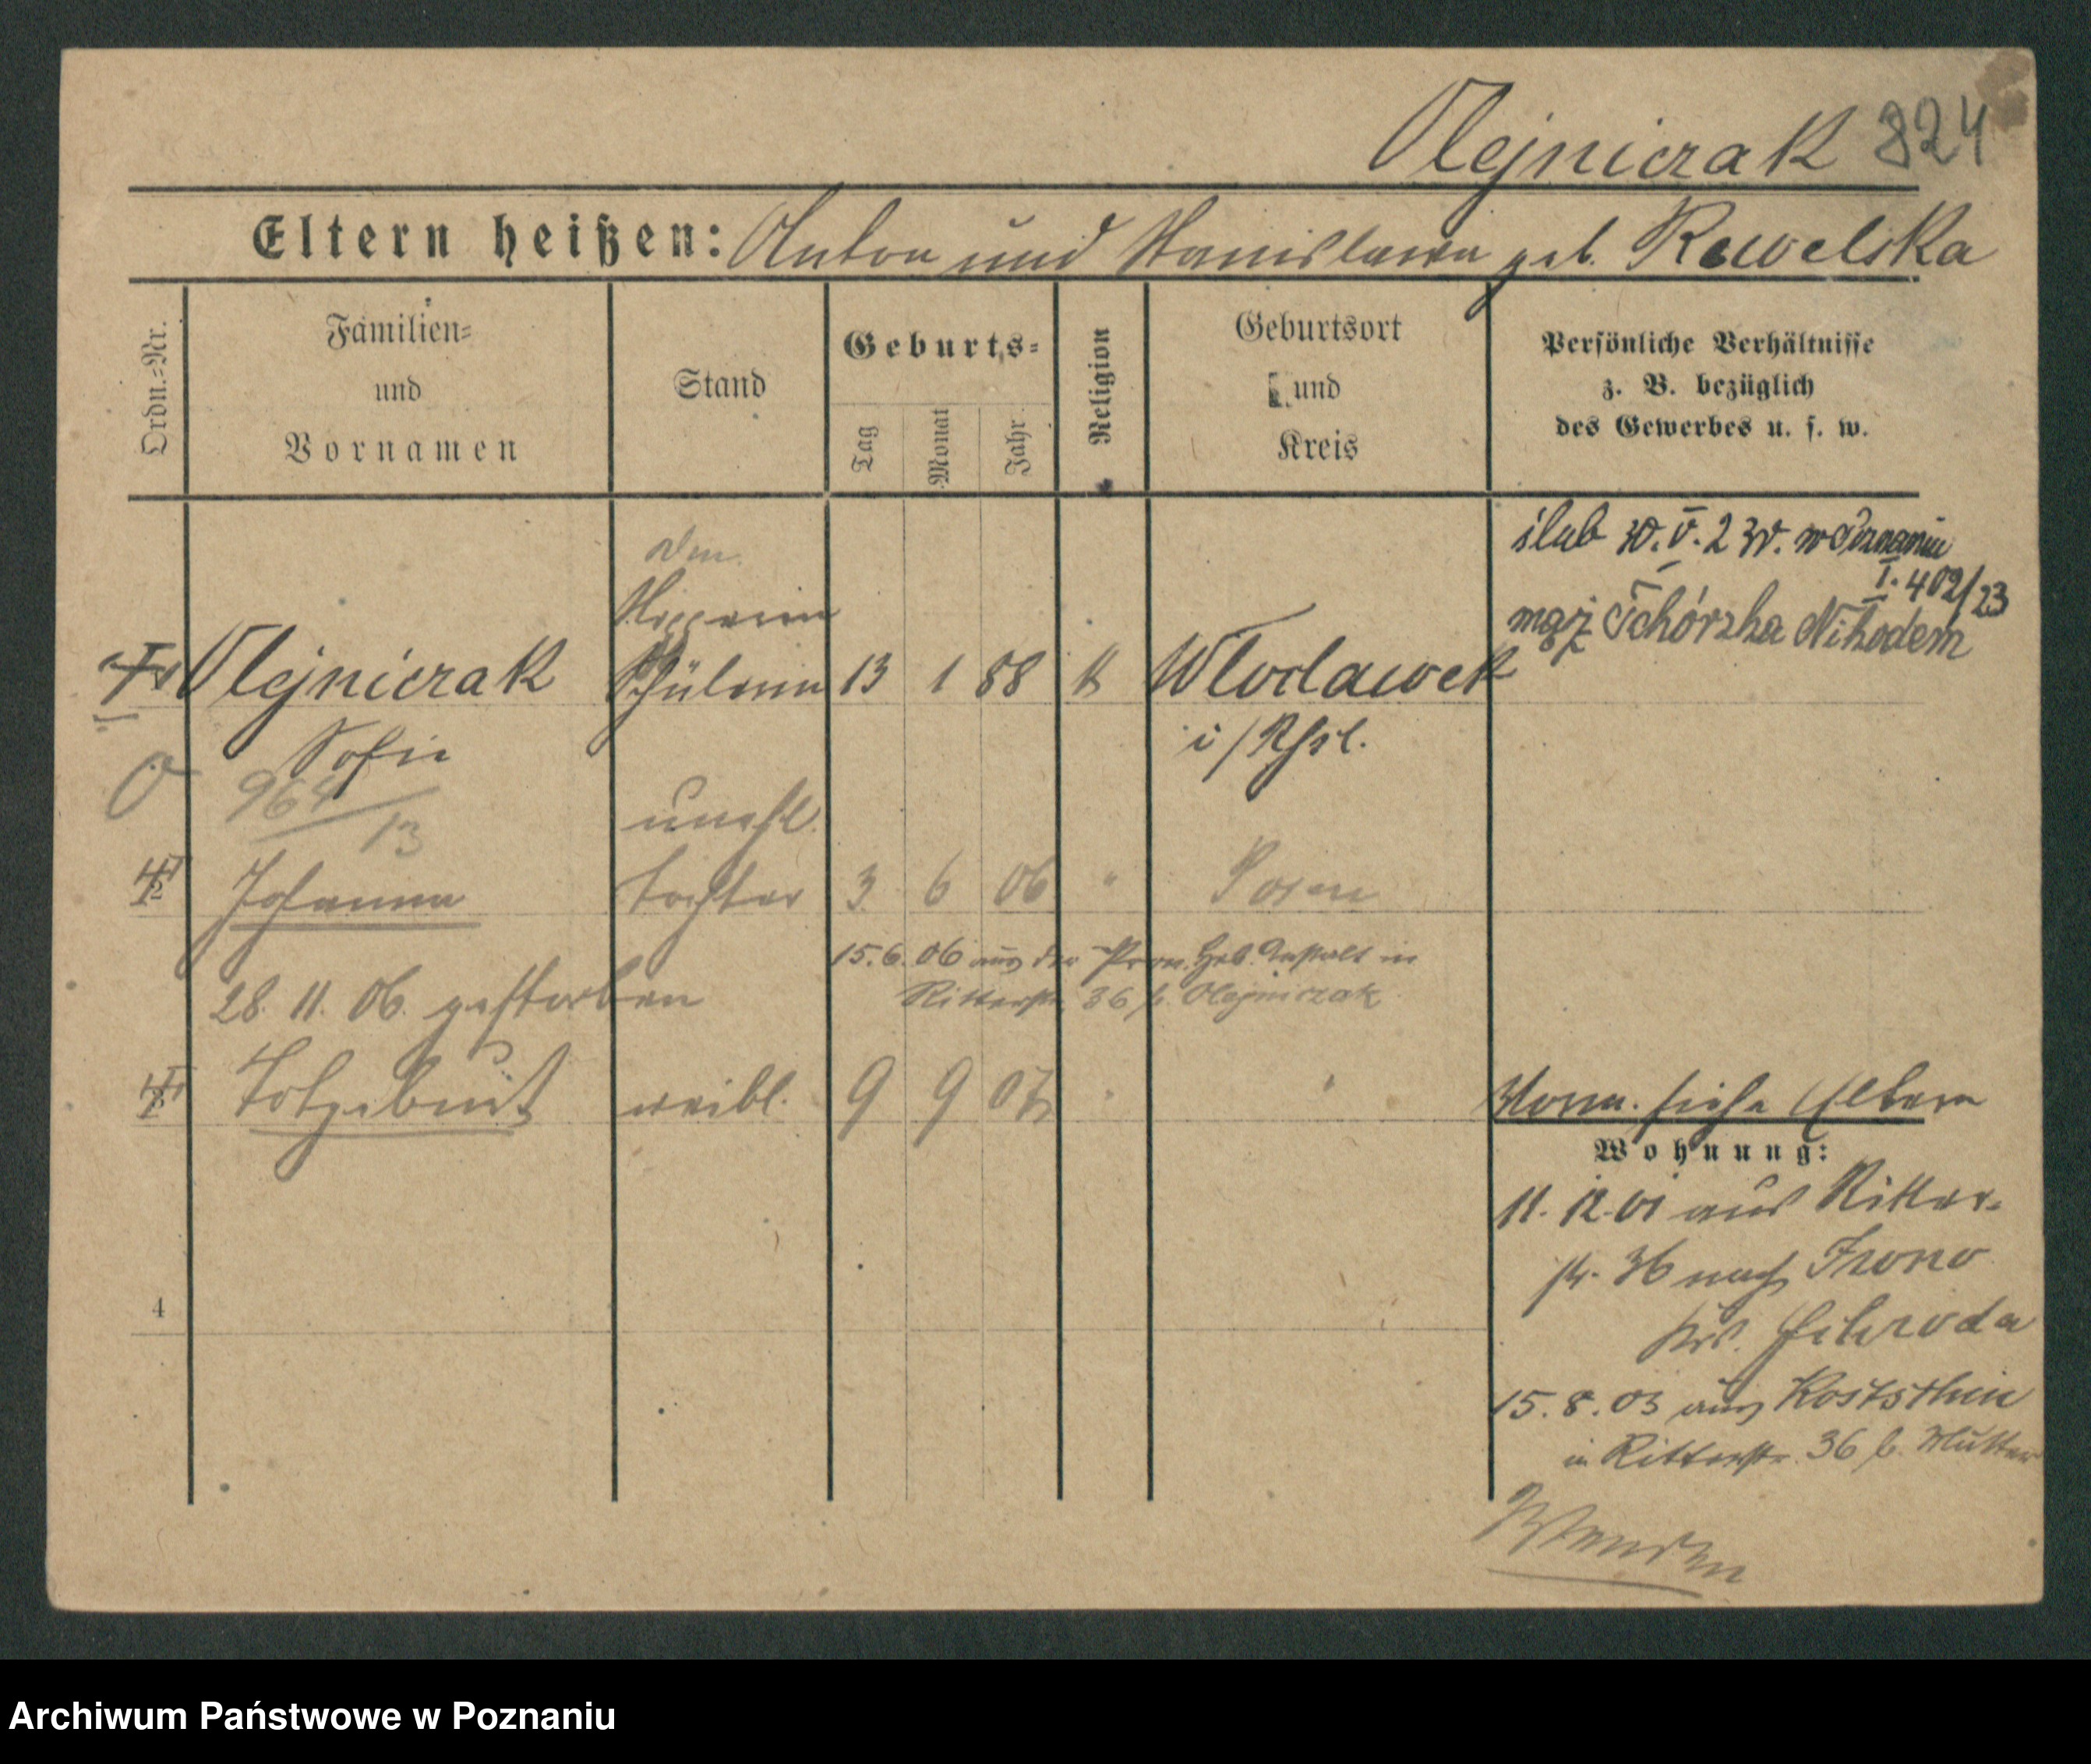 Olejniczak 824
Eltern heißen: Anton und Stanislawa geb. Rewelska
Ordn.=Nr.
Familien=
und
Vornamen
Stand
Geburts=
Tag
Monat
Jahr
Religion
Geburtsort
und
Kreis
Persönliche Verhältnisse
z. B. bezüglich
des Gewerbes u. s. w.
ślub 30. V. 23 r. w Poznaniu
I. 402/23
mąż Tchórzka Nikodem
Olejniczak Schülerin 13 1 88 K Wloclawek
Sofie i/Rssl.
964/13
unehl.
2 Johanna Tochter 3 6 06 " Posen
15.6.06 aus der Prov. Heb. Anstalt in
Ritterstr. 36 b. Olejniczak
28. 11. 06. gestorben
3 Totgeburt weibl. 9 9 07 " "
Vorm. siehe Eltern
Wohnung:
11. 12. 01 aus Ritter-
str. 36 nach
Krs. Schroda
15. 8. 03 aus Kostschin
in Ritterstr. 36 b. Mutter
4
Wenden
Archiwum Państwowe w Poznaniu